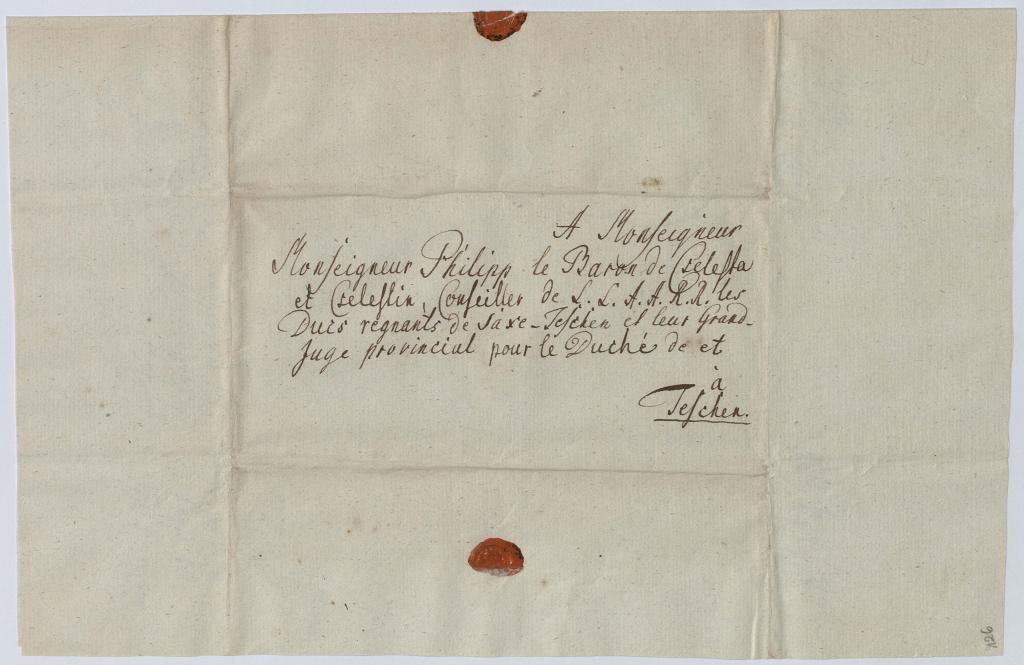 A Monseigneur
Monseigneur Philipp le Baron de Cselesta
et Cselestin, Conseiller de L. L. A. A. R. R. les
Ducs regnants de Saxe-Teschen et leur Grand-
Juge provincial pour le Duché de et
à
Teschen.
126